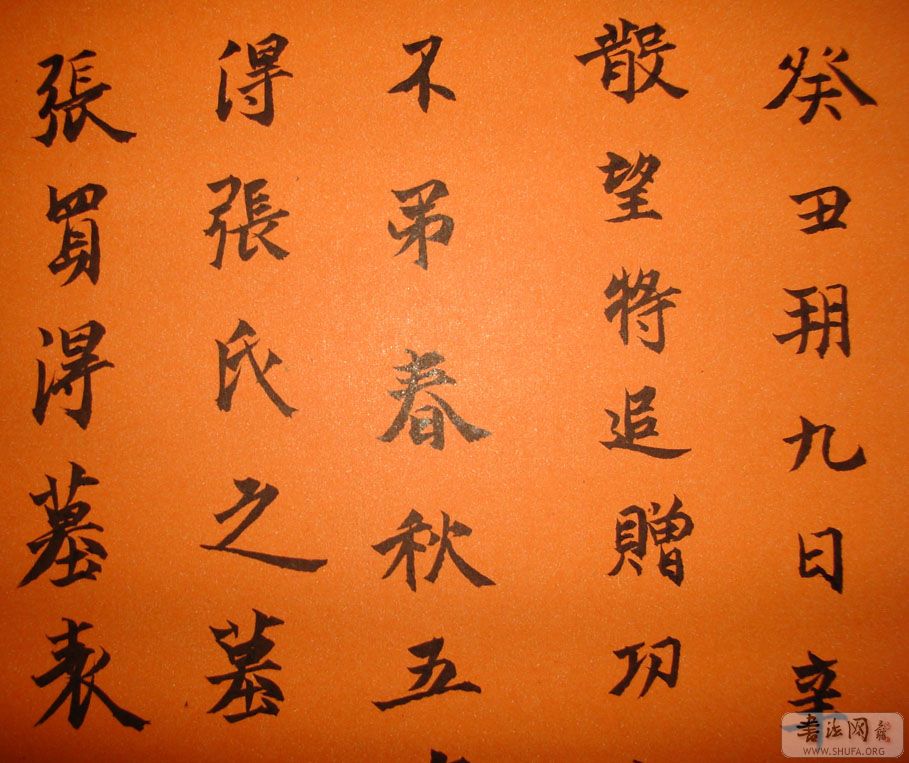 癸丑朔九日辛
散望將追贈功
不弔春秋五
得張氏之墓
張買得墓表
書法网
WWW.SHUFA.ORG